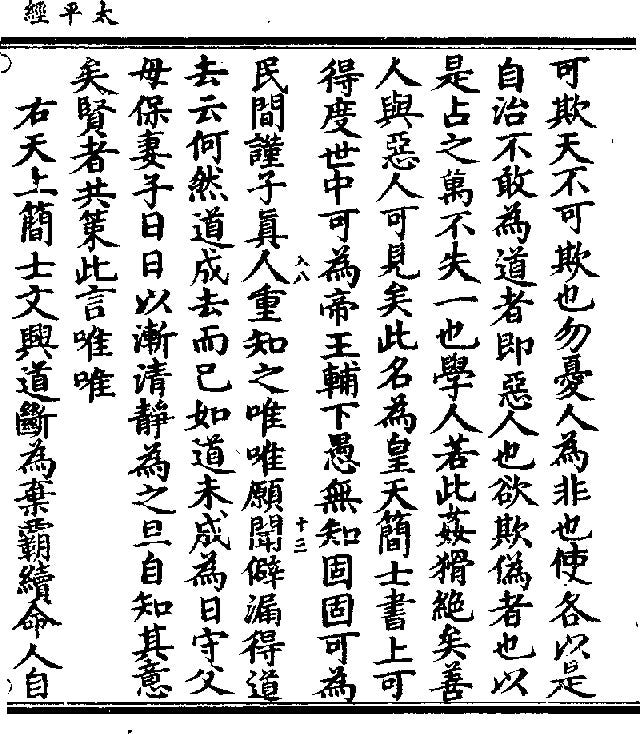 太平經
可欺天不可欺也勿憂人為非也使各以是
自治不敢為道者即惡人也欲欺偽者也以
是占之萬不失一也學人若此姦猾絕矣善
人與惡人可見矣此名為皇天簡士書上可
得度世中可為帝王輔下愚無知固固可為
入八
十三
民間謹子真人重知之唯唯願聞僻漏得道
去云何然道成去而已如道未成為日守父
母保妻子日日以漸清靜為之旦自知其意
矣賢者共策此言唯唯
右天上簡士文興道斷為棄霸續命人自